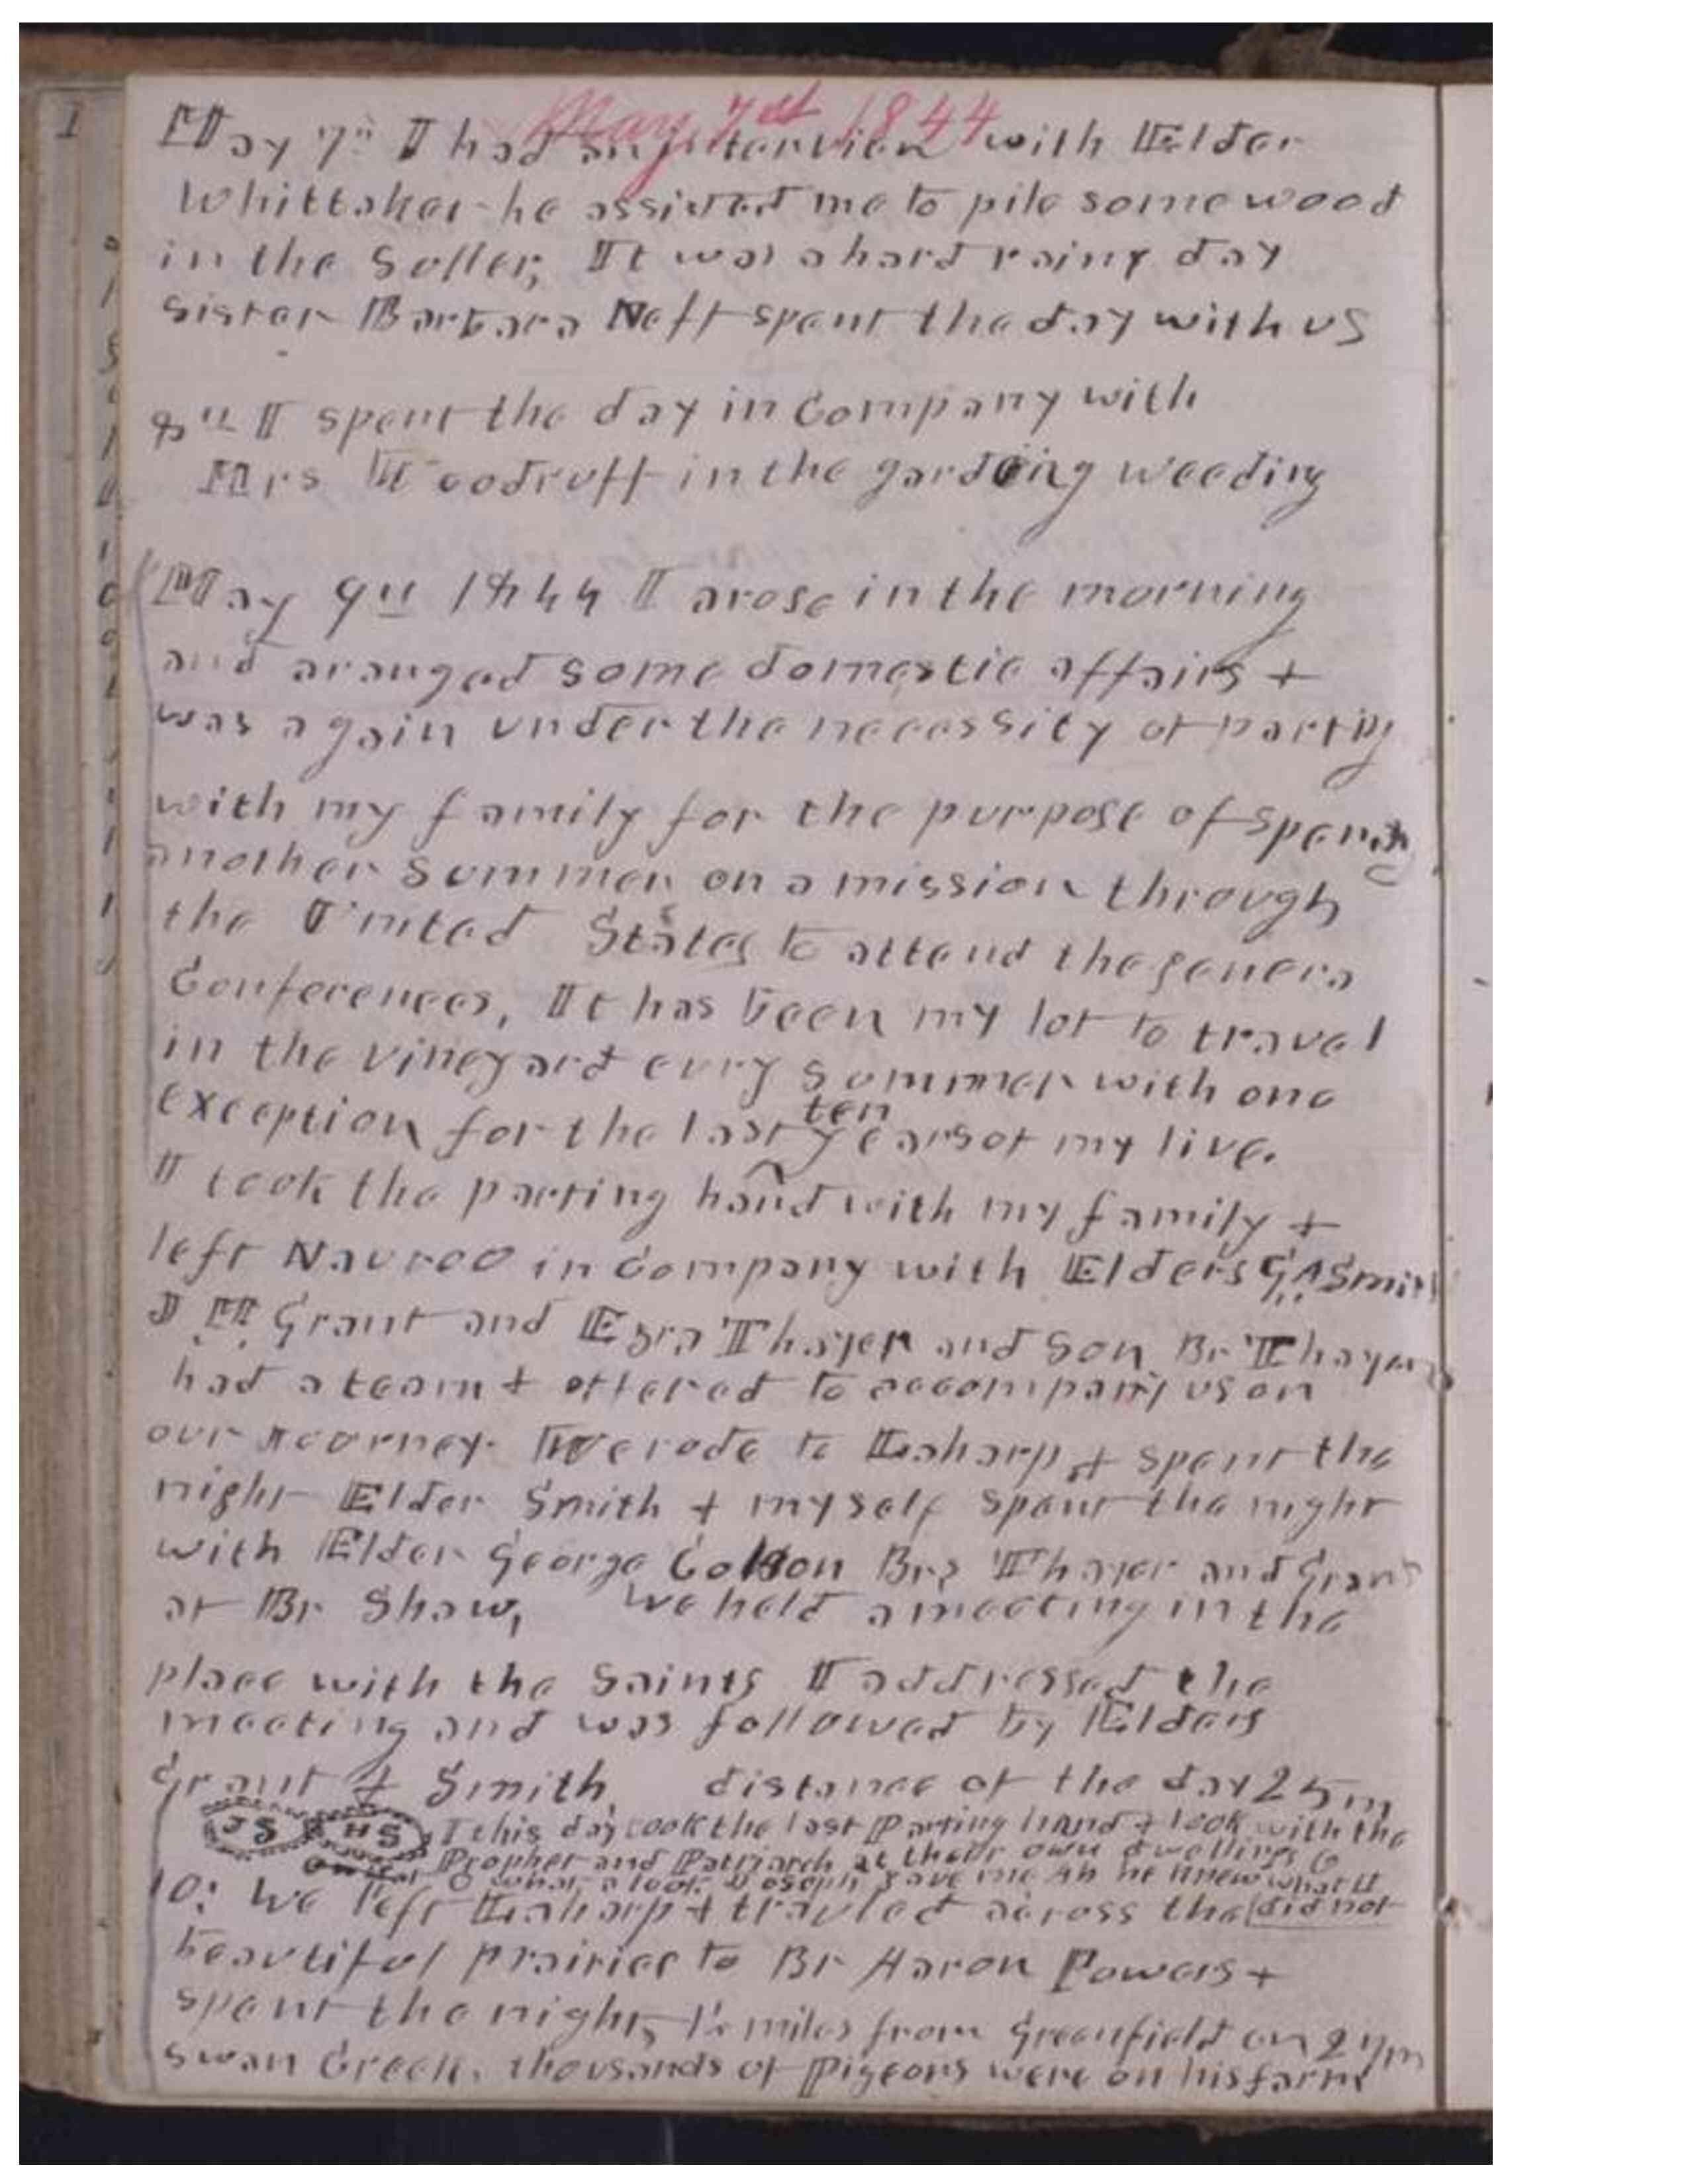 May 7th 1844
May 7th I had an interview with Elder
Whittaker he assisted me to pile some wood
in the Seller, It was a hard rainy day
Sister Barbara Neff spent the day with us
8th I spent the day in Company with
Mrs Woodruff in the gardeing weeding
May 9th 1844 I arose in the morning
and aranged some domestic affairs +
was again under the necessity of parting
with my family for the purpose of spending
another Summer on a mission through
the United States to attend the genera
Conferences, It has been my lot to travel
in the vineyard evry summer with one
exception for the last ten years of my live.
I took the parting hand with my family +
left Nauvoo in Company with Elders G. A. Smith
J M Grant and Ezra Thayer and Son Br Thayer
had a team + offered to accompany us on
our journey. We rode to Laharp + spent the
night Elder Smith + myself spent the night
with Elder George Colson Brs Thayer and Grant
at Br Shaw, We held a meeting in the
place with the Saints I addressed the
meeting and was followed by Elders
Grant + Smith distance of the day 25 m
JS HS I this day took the last Parting hand + look with the
Prophet and Patriarch at their own dwellings O
O what a look Joseph gave me Ah he knew what I
did not
10: We left Laharp + travled across the
beautiful prairies to Br Aaron Powers +
spent the night, 1½ miles from Greenfield on 27 m
Swan Creek. thousands of Pigeons were on his farm